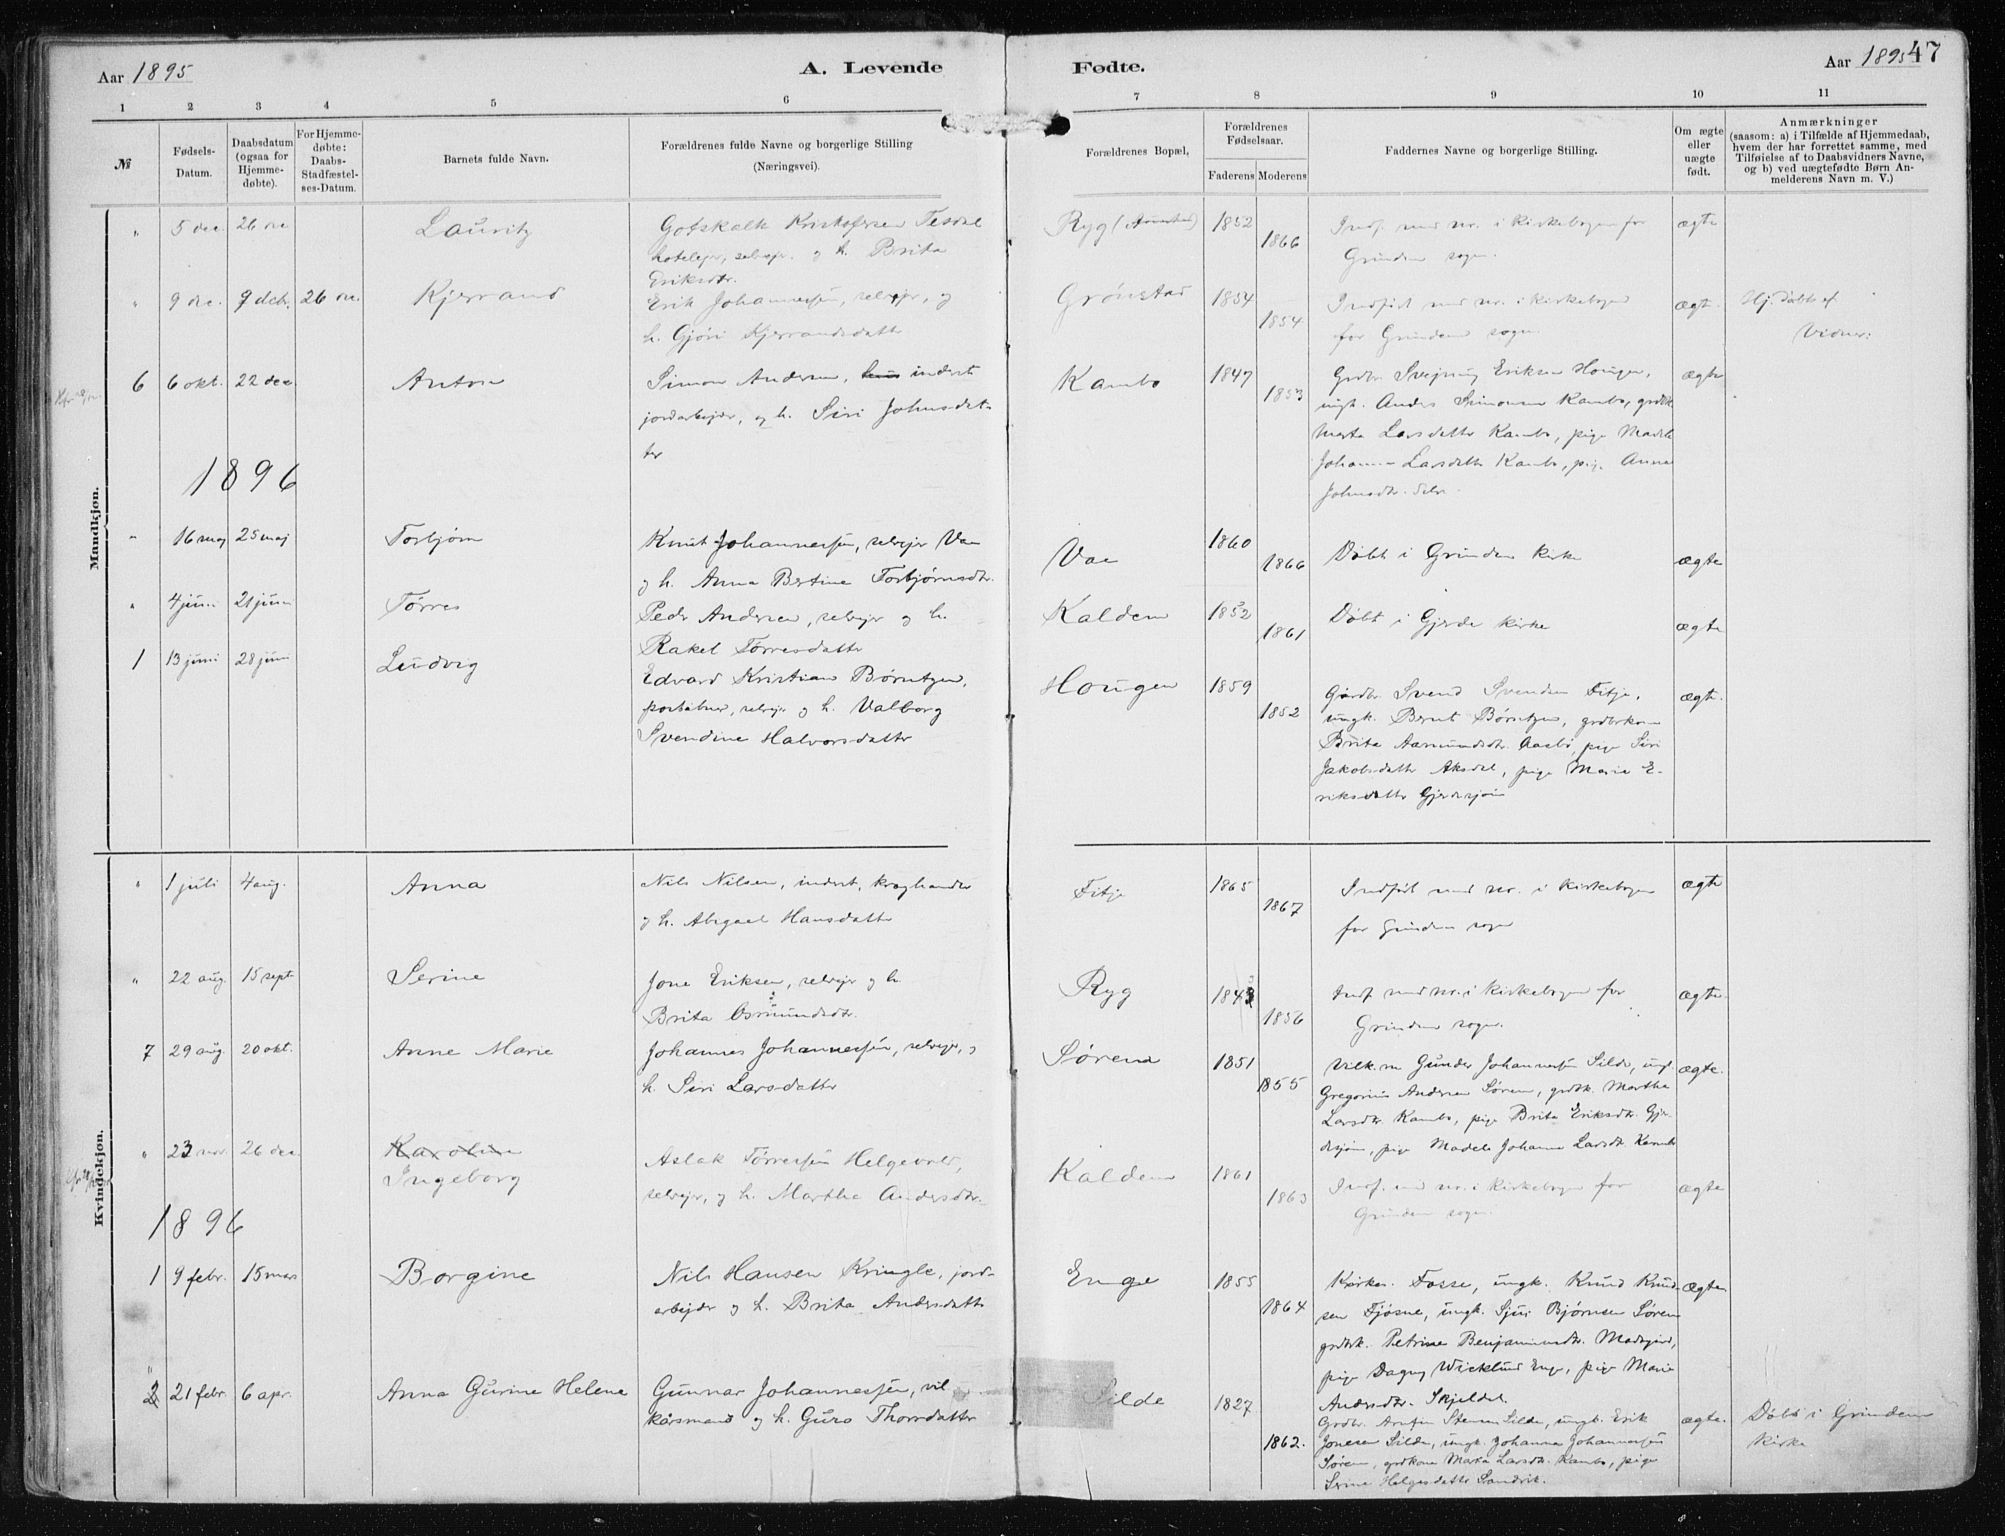 Aar 1895
A. Levende Fødte.
Aar 1895
47
1 2 3 4 5 6 7 8 9 10 11
№
Fødsels-
Datum.
Daabsdatum
(ogsaa for
Hjemme-
døbte).
For Hjemme-
døbte:
Daabs-
Stadfæstel-
ses-Datum.
Barnets fulde Navn.
Forældrenes fulde Navne og borgerlige Stilling
(Næringsvei).
Forældrenes Bopæl,
Forældrenes
Fødselsaar.
Faderens Moderens
Faddernes Navne og borgerlige Stilling.
Om ægte
eller
uægte
født.
Anmærkninger
(saasom: a) i Tilfælde af Hjemmedaab,
hvem der har forrettet samme, med
Tilføielse af to Daabsvidners Navne,
og b) ved uægtefødte Børn An-
melderens Navn m. V.)
Mandkjøn.
" 5 dec 26 dec Lauritz
Gotskalk Kristofersen Tesdal
hotelejer, selvejer. og h. Brita
Eriksdtr.
Ryg 1852 1866
Indf. med nr. i Kirkebogen for
Grinden sogn.
ægte
" 9 dec. 9 deb. 26 dec. Kjerrand
Erik Johannessen, selvejer, og
h. Gjøri Kjerrandsdatter
Grönstad 1854 1854
Indført med nr. i kirkebogen
for Grinden sogn.
ægte.
Hj. døbt af
Vidner:
6 6 okt. 22 dec Anton
Simon Andersen, inderst
jordarbejder, og h. Siri Johnsdat-
ter
Kambo 1847 1853
Grdbr. Svejnung Eriksen Hougen,
ungk. Anders Simonsen Kambo, grdbk.
Marta Larsdatter Kambo, pige Madele
Johanne Larsdatter Kambo, pige Anna
Johnsdtr. Selv.
ægte
1896
" 16 maj 25 maj Torbjørn
Knut Johannessen, selvejer Vae
og h. Anna Bertine Torbjørnsdtr.
Vae 1860 1866
Døbt i Grinden kirke
ægte
" 4 juni 21 juni Tørres
Peder Andersen, selvejer og h.
Rakel Tørresdatter
Kaldem 1852 1861
Døbt i Gjerde kirke
ægte
1 13 juni 28 juni Ludvig
Edvard Kristian Børntzen,
postaabner, selvejer og h. Valborg
Svendine Halvorsdatter
Hougen 1859 1852
Gårdbr. Svend Svendsen Fitje,
ungk. Bernt Børntzen, grdbrkone
Brita Aamundsdtr. Aasbø, pige Siri
Jakobsdatter Aksdal, pige Marie E-
riksdatter Gjerdesjøen
ægte.
Kvindekjøn.
" 1 juli 4 aug. Anna
Nils Nilsen, inderst, kraghandler
og h. Abigael Hansdatter
Fitje 1865 1867
Indført med nr. i kirkebogen
for Grinden sogn
ægte
" 22 aug. 15 sept Serine
Jone Eriksen, selvejer og h.
Brita Osmundsdtr.
Ryg 1843 1856
Indf. med nr. i kirkebogen for
Grinden sogn.
ægte.
7 29 aug. 20 okt. Anne Marie
Johannes Johannessen, selvejer, og
h. Siri Larsdatter
Sørem 1851 1855
Vilk.m Gunder Johannessen Silde, ungk.
Gregorius Andersen Sørem, grdbk. Martha
Larsdtr Kambo, pige Brita Eriksdtr. Gjer-
desjøen, pige Madele Johanne Larsdtr. Kambo
ægte.
" 23 nov. 26 dec. Karoline
Ingeborg
Aslak Tørressen Helgevold,
selvejer, og h. Martha Andersdtr.
Kaldem 1861 1863
Indf. med nr. i kirkebogen for
Grinden sogn.
ægte
1896
1 9 febr. 15 mars Borgine
Nils Hansen Kringle, jord-
arbejder og h. Brita Andersdatter
Enge 1855 1864
Kirkes. Fosse, ungk. Knud Knud-
sen Fjøsne, ungk. Sjur Bjørnsen Sørem
grdbk. Petrine Benjaminsdtr. Madsgjerd,
pige Dagny Wicklund Enge, pige Marie
Andersdtr. Skjeldal.
ægte
" 2 21 febr. 6 apr. Anna Gurine Helene
Gunnar Johannessen, vil-
kårsmand og h. Guro Thorsdatter
Silde 1827 1862.
Grdbr. Arnfin Stensen Silde, ungk. Erik
Jonesen Silde, ungk. Johannes Johannessen
Sørem, grdkone Marta Larsdtr. Kambo, pige
Serine Helgesdatter Sandvik.
ægte.
Døbt i Grinden
kirke